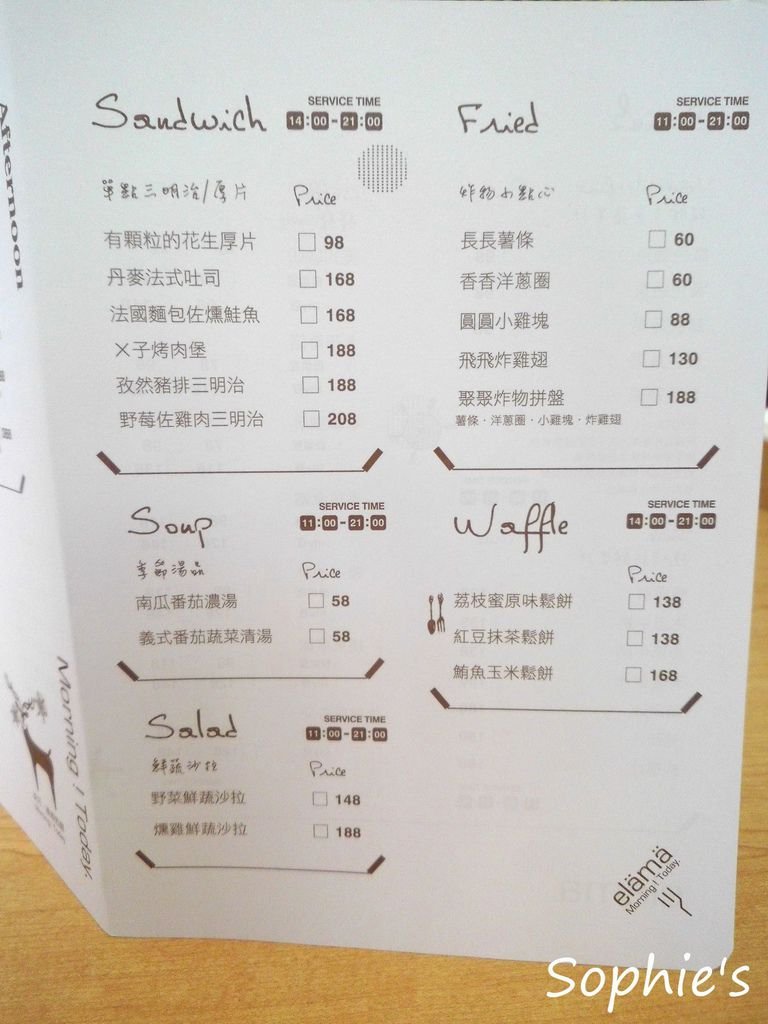 Afternoon
Morning ! Today.
Sandwich
SERVICE TIME
14:00-21:00
單點三明治/厚片 Price
有顆粒的花生厚片 98
丹麥法式吐司 168
法國麵包佐燻鮭魚 168
X子烤肉堡 188
孜然豬排三明治 188
野莓佐雞肉三明治 208
Soup
SERVICE TIME
11:00-21:00
季節湯品 Price
南瓜番茄濃湯 58
義式番茄蔬菜清湯 58
Salad
SERVICE TIME
11:00-21:00
鮮蔬沙拉 Price
野菜鮮蔬沙拉 148
燻雞鮮蔬沙拉 188
Fried
SERVICE TIME
11:00-21:00
炸物小點心 Price
長長薯條 60
香香洋蔥圈 60
圓圓小雞塊 88
飛飛炸雞翅 130
聚聚炸物拼盤 188
薯條·洋蔥圈·小雞塊·炸雞翅
Waffle
SERVICE TIME
14:00-21:00
Price
荔枝蜜原味鬆餅 138
紅豆抹茶鬆餅 138
鮪魚玉米鬆餅 168
elämä
Morning ! Today.
Sophie's